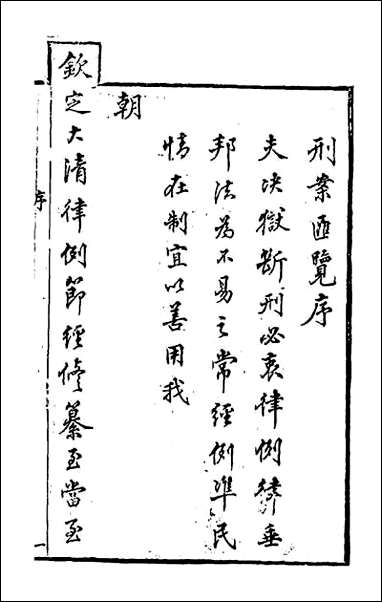 刑案匯覽序
夫决獄斷刑必衷律例律垂
邦法為不易之常經例準民
情在制宜以善用我
朝
欽定大清律例節經修纂至當至
序
一